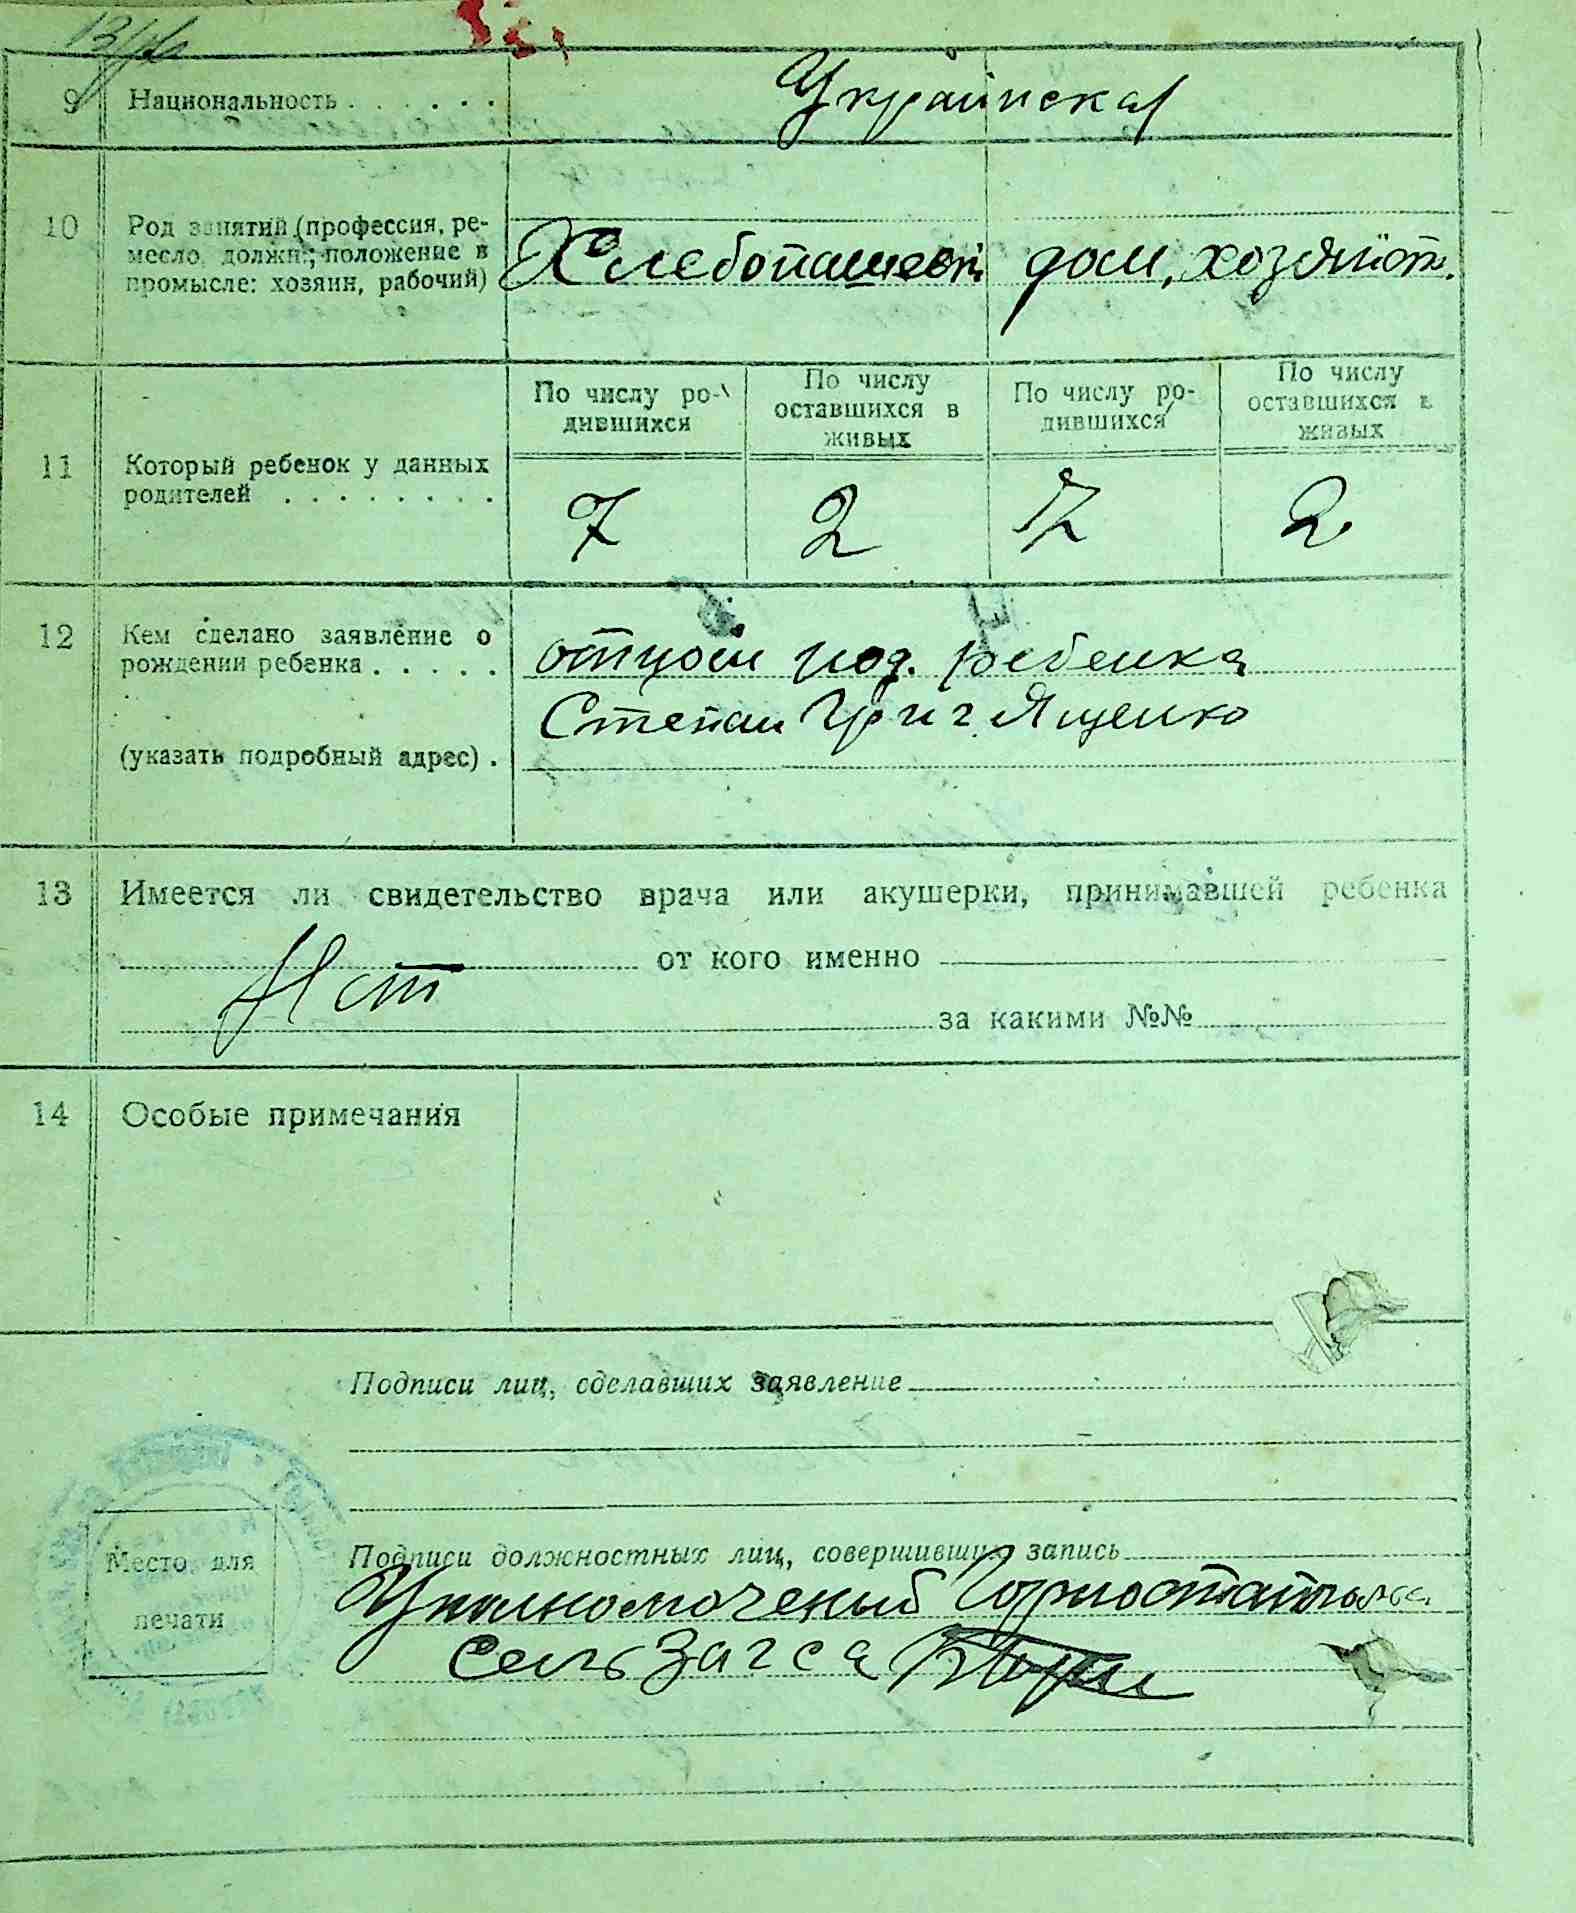 9 Национальность . . . . . . Украинская
10 Род занятий (профессия, ре-
месло, должн.; положение в
промысле: хозяин, рабочий)
Хлебопашест. дом, хозяйст.
По числу ро-
дившихся
По числу
оставшихся в
живых
По числу ро-
дившихся
По числу
оставшихся в
живых
11 Который ребенок у данных
родителей . . . . . . . .
7 2 7 2
12 Кем сделано заявление о
рождении ребенка . . . . .
отцом нод. ребенка
Степан Григ Ященко
(указать подробный адрес) .
13 Имеется ли свидетельство врача или акушерки, принимавшей ребенка
Нет от кого именно
за какими №№
14 Особые примечания
Подписи лиц, сделавших заявление
Подписи должностных лиц, совершивших запись
Место для
печати
Уполномоченый
СельЗагса